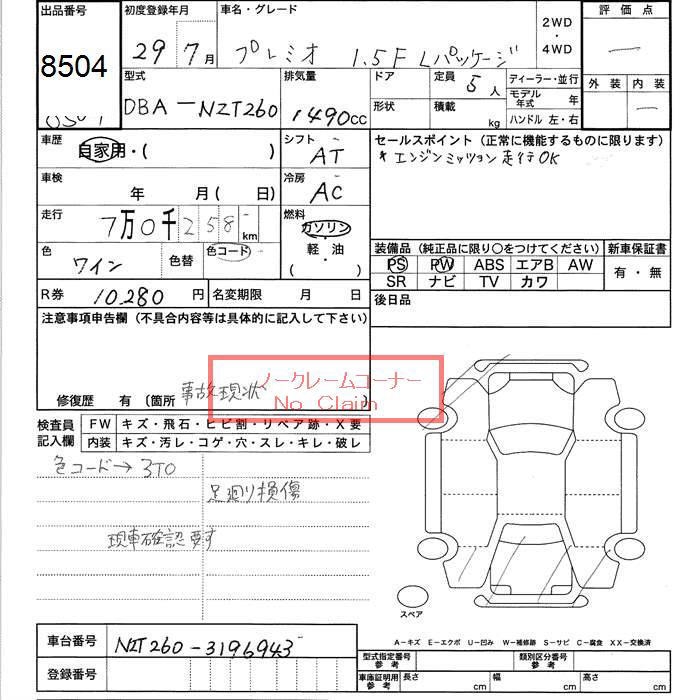 出品番号 初度登録年月 車名・グレード 評価点
8504 29 7月 プレミオ 1.5F Lパッケージ 2WD・4WD
型式 排気量 ドア 定員 5人 ディーラー・並行 外装 内装
DBA-NZT260 1490cc 形状 積載 kg モデル年式 年
ハンドル 左・右
車歴 自家用・( ) シフト AT セールスポイント (正常に機能するものに限ります)
*エンジンミッション走行OK
車検 年 月( 日) 冷房 AC
走行 7万0千258km 燃料 ガソリン 軽・油 ( )
色 ワイン 色替 色コード
装備品 (純正品に限り○をつけてください) 新車保証書
PS PW ABS エアB AW 有・無
SR ナビ TV カワ
R券 10,280円 名変期限 月 日 後日品
注意事項申告欄 (不具合内容等は具体的に記入して下さい)
ノークレームコーナー
No Claim
修復歴 有 (箇所 事故現状
検査員記入欄 FW キズ・飛石・ヒビ割・リペア跡・X要
内装 キズ・汚レ・コゲ・穴・スレ・キレ・破レ
色コード→3T0
足廻り損傷
現車確認要す
スペア
A-キズ E-エクボ U-凹み W-補修跡 S-サビ C-腐食 XX-交換済
車台番号 NZT260-3196943
型式指定番号 参考 類別区分番号 参考
登録番号 車庫証明用 参考 長さ cm 幅 cm 高さ cm